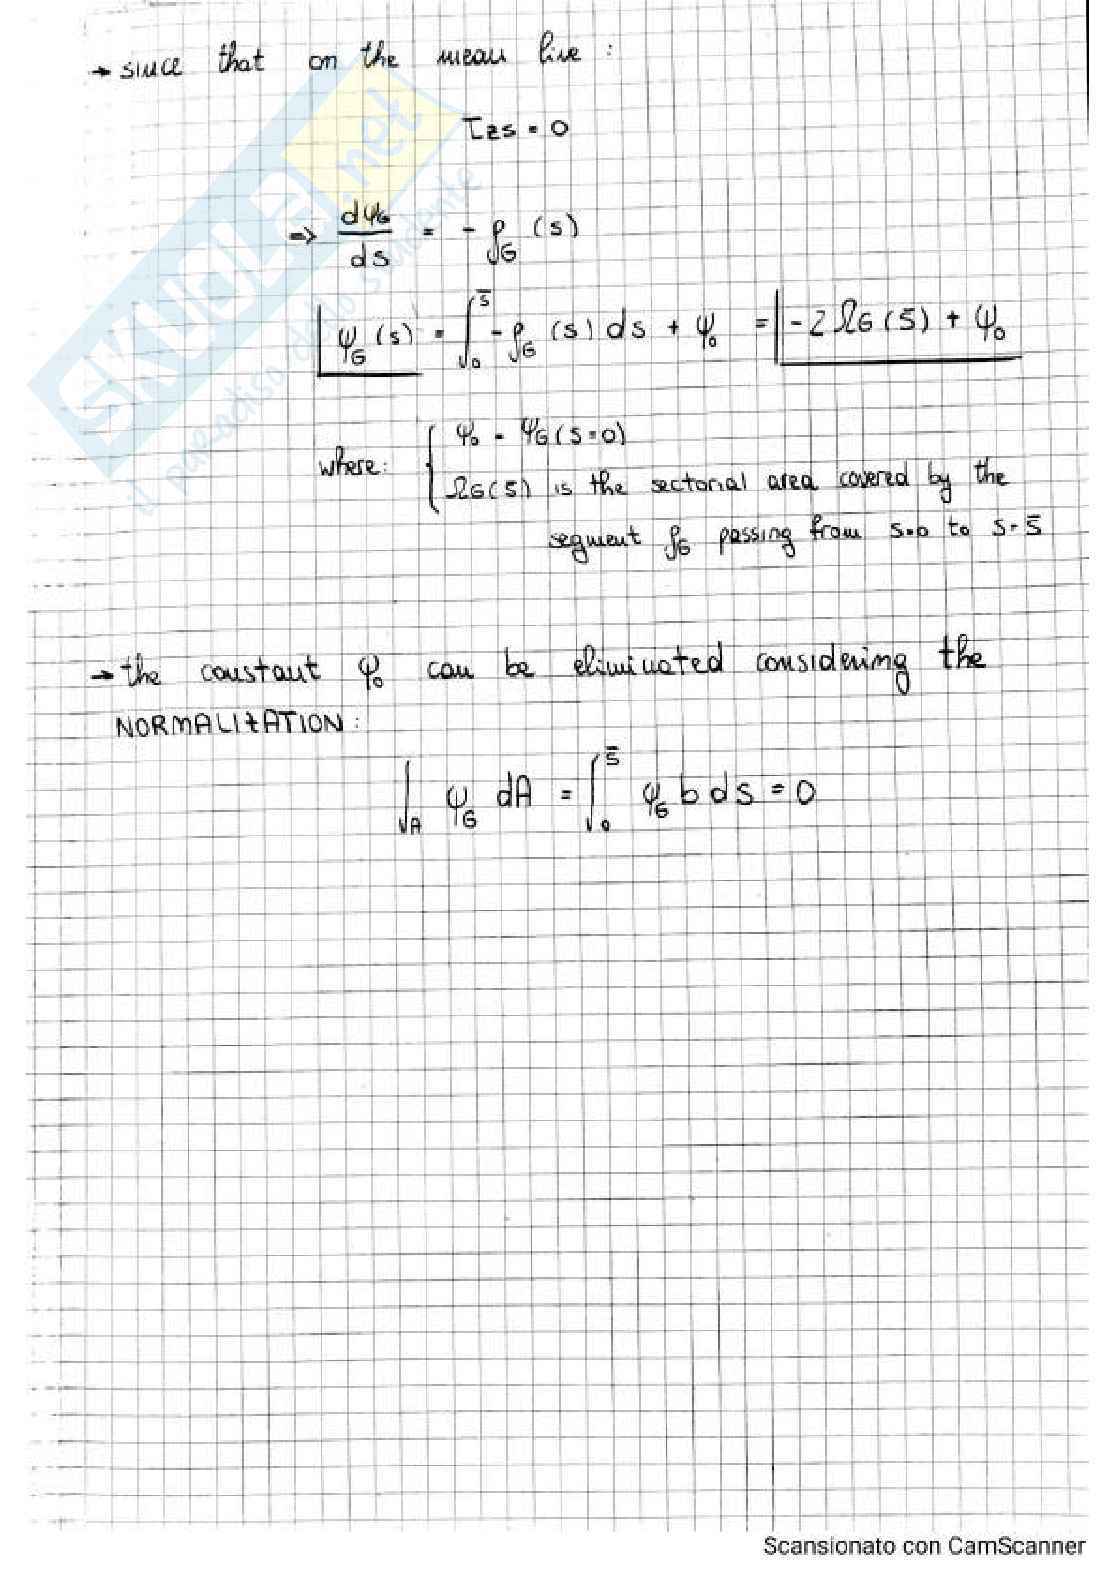 → since that on the mean line :
τzs = 0
=> dψG/ds = - ρG (s)
ψG (s) = ∫₀^s̄ - ρG (s) ds + ψ₀ = - 2 ΩG (s̄) + ψ₀
where: { ψ₀ = ψG (s=0)
ΩG (s̄) is the sectorial area covered by the
segment ρG passing from s=0 to s=s̄
→ the constant ψ₀ can be eliminated considering the
NORMALIZATION :
∫A ψG dA = ∫₀^s̄ ψG b ds = 0
SKUOLA.net
il paradiso dello studente
Scansionato con CamScanner